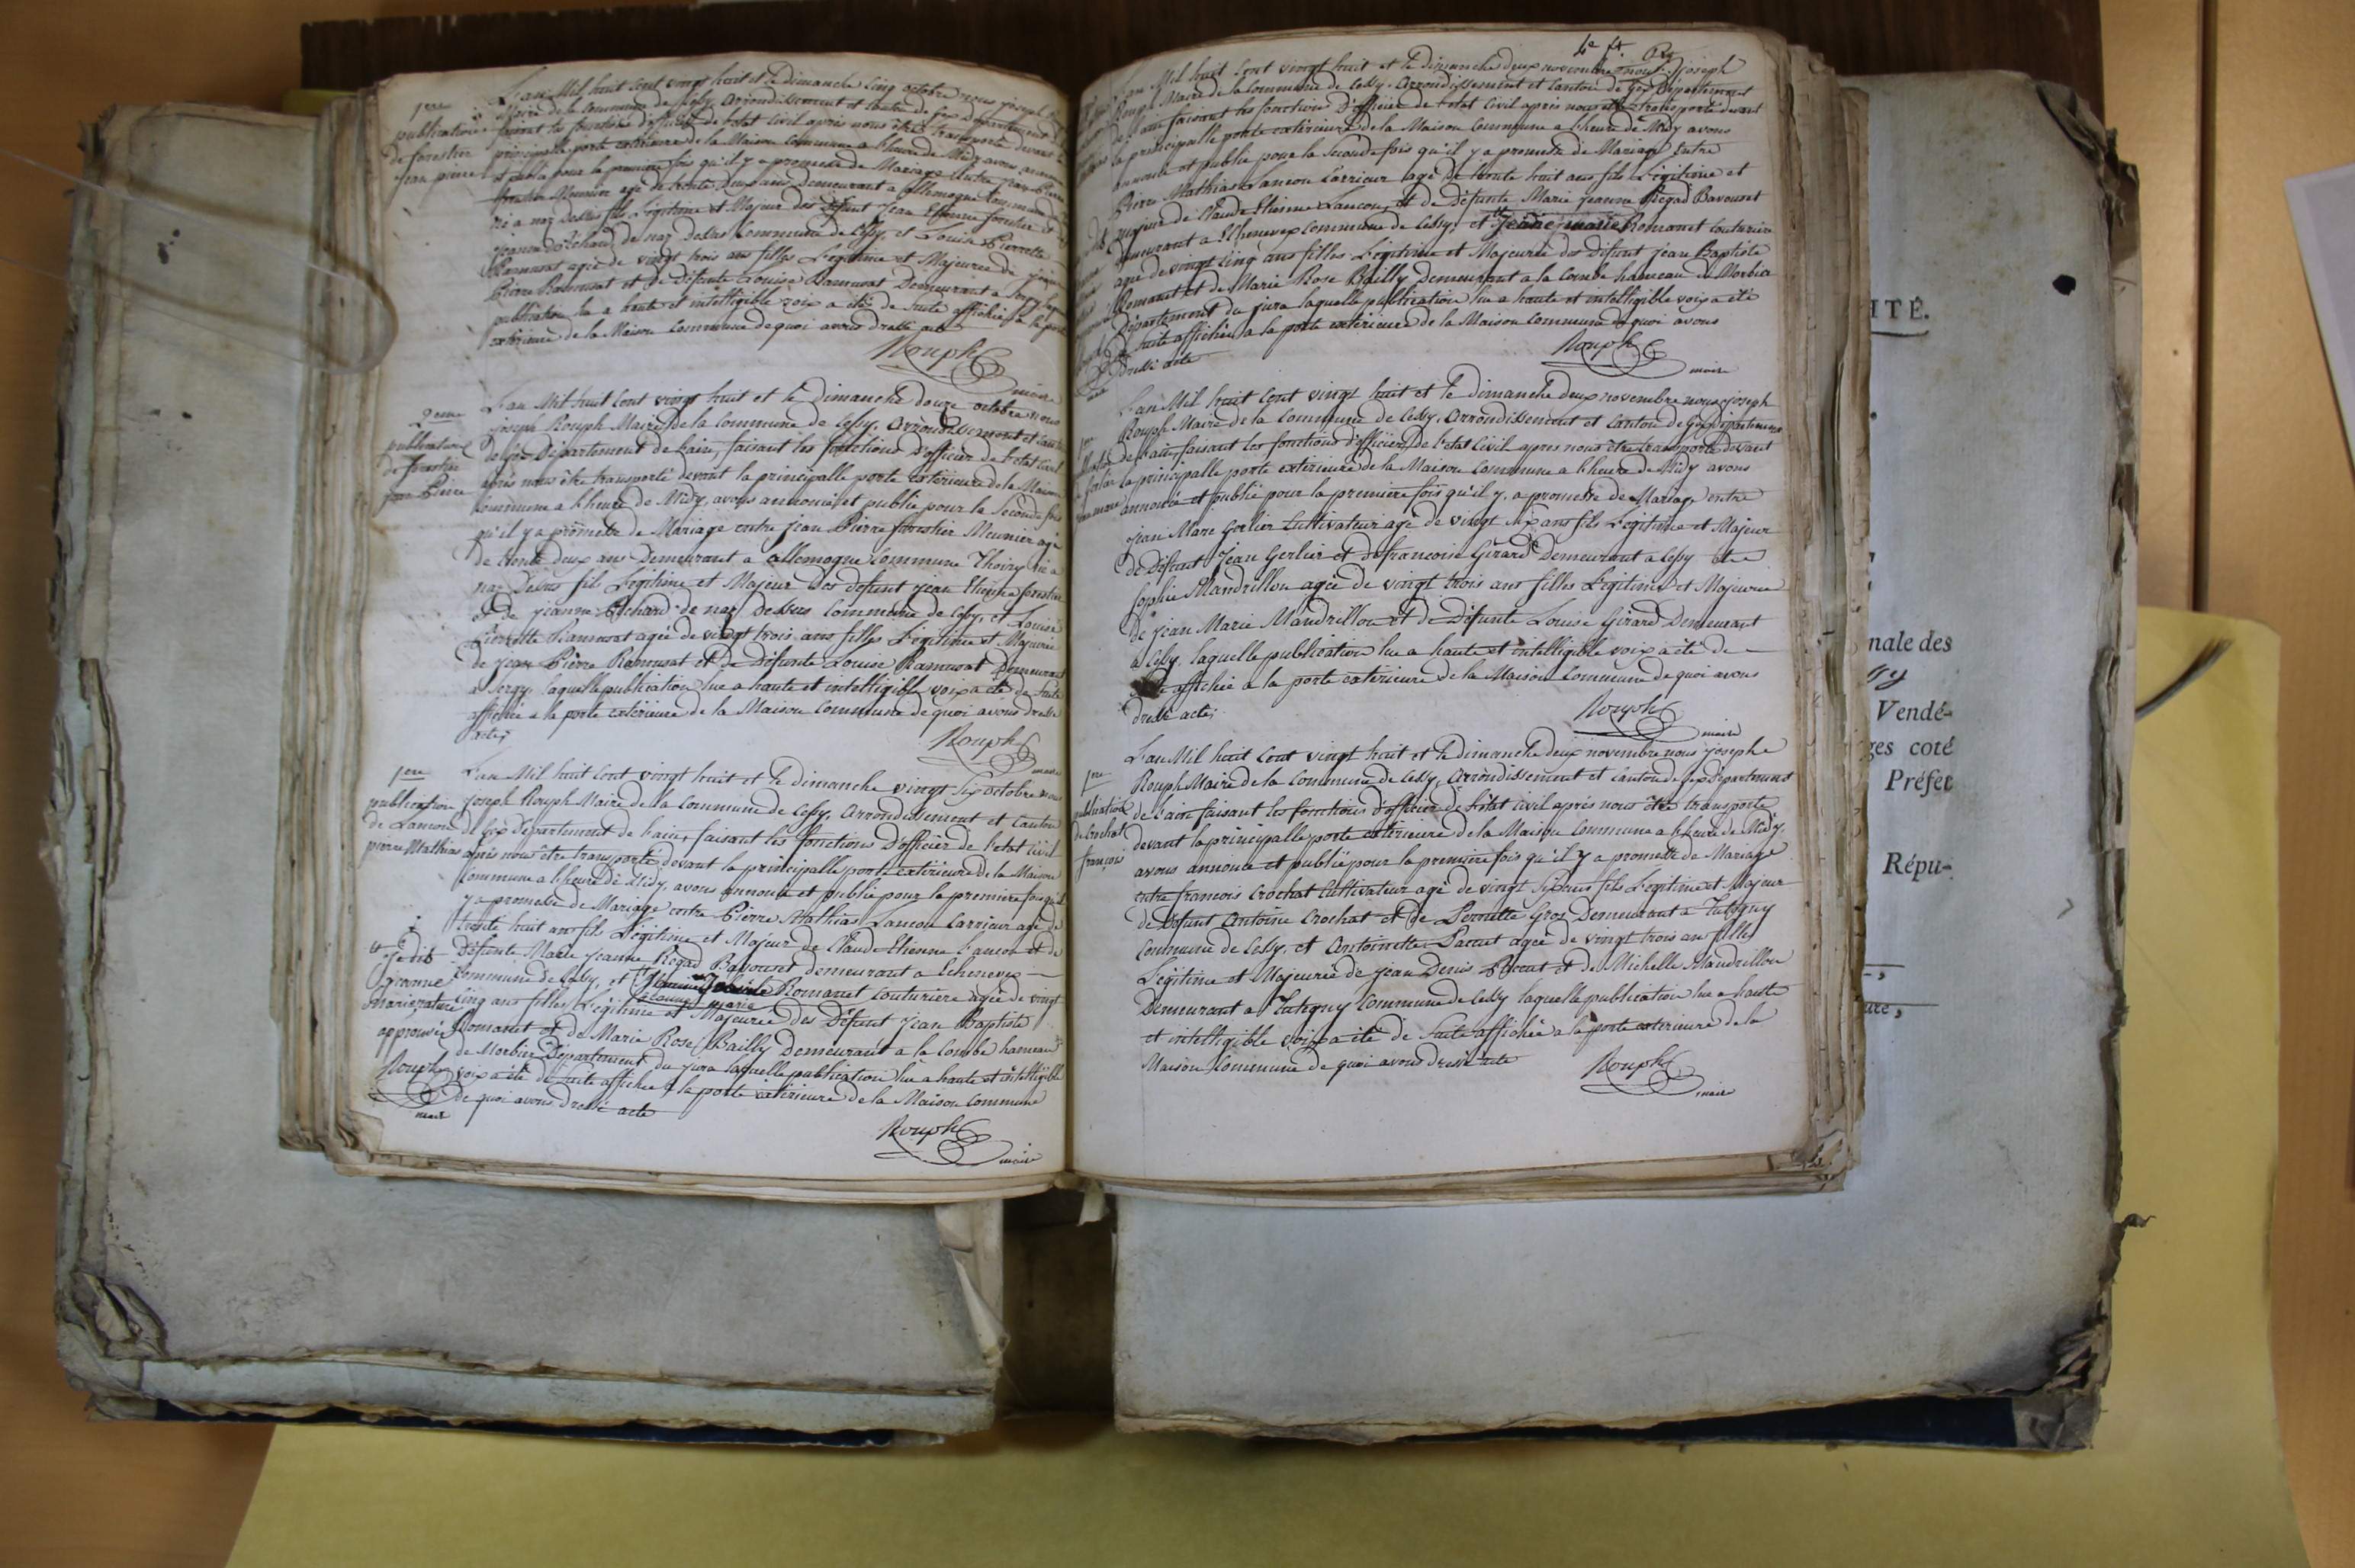 1ere
publication
de forestier
jean pierre
L'an Mil huit Cent vingt huit et le dimanche Cinq octobre nous joseph
Maire de la Commune de Cessy, Arrondissement et Canton de Gex Département
faisant les fonctions d'officier de l'etat Civil après nous être transporté devant la
principalle porte extérieure de la Maison Commune a l'heure de Midy avons annoncé
et publié pour la première fois qu'il y a promesse de Mariage Entre jean Pierre
forestier Meunier agé de trente deux ans Demeurant a allemogne Commune
né a naz Dessus fils Légitime et Majeur des défunt Jean Etienne forestier et
jeanne Richard de naz Dessus Commune de Cessy, et Louise Pierrette
Ramusat agée de vingt trois ans filles Légitime et Majeuree de jean
Pierre Ramusat et de Défunte Louise Ramusat Demeurant a Sergy
publication lue a haute et intelligible voix a été de suite affichée a la porte
extérieure de la Maison Commune de quoi avons dressé acte
Rouph
maire
2eme
publication
de forestier
jean Pierre
L'an Mil huit Cent vingt huit et le dimanche douze octobre nous
joseph Rouph Maire de la Commune de Cessy, Arrondissement et Canton
de Gex Département de l'ain, faisant les fonctions d'officier de l'etat Civil
après nous être transporté devant la principalle porte extérieure de la Maison
Commune a l'heure de Midy, avons annoncé et publié pour la Seconde fois
qu'il y a promesse de Mariage entre jean Pierre forestier Meunier agé
de trente deux ans Demeurant a allemogne Commune Thoiry né a
naz Dessus fils Légitime et Majeur des défunt jean Etienne forestier
et de jeanne Richard de naz Dessus Commune de Cessy, et Louise
Pierrette Ramusat agée de vingt trois ans filles Légitime et Majeuree
de jean Pierre Ramusat et de Défunte Louise Ramusat Demeurant
a Sergy laquelle publication lue a haute et intelligible voix a été de suite
affichée a la porte extérieure de la Maison Commune de quoi avons dressé
acte
Rouph
maire
1ere
publication
de Lancon
pierre Mathias
L'an Mil huit Cent vingt huit et le dimanche vingt Six octobre nous
joseph Rouph Maire de la Commune de Cessy, Arrondissement et Canton
de Gex Département de l'ain, faisant les fonctions d'officier de l'etat Civil
après nous être transporté devant la principalle porte extérieure de la Maison
Commune a l'heure de Midy, avons annoncé et publié pour la première fois qu'il
y a promesse de Mariage entre Pierre Mathias Lancon Carrieur agé de
trente huit ans fils Légitime et Majeur de Claude Etienne Lancon et de
Défunte Marie Jeanne Regad Bavouset demeurant a Echenevex
Commune de Cessy, et Romanet Couturiere agée de vingt
jeanne marie
Cinq ans filles Légitime et Majeuree des Défunt Jean Baptiste
Romanet et de Marie Rose Bailly Demeurant a la Combe hameau
de Morbier Département du jura laquelle publication lue a haute et intelligible
voix a été de suite affichée a la porte extérieure de la Maison Commune
de quoi avons dressé acte
je dis
jeanne
marie rature
approuvée
Rouph
maire
Rouph
maire
4e ft.
L'an Mil huit Cent vingt huit et le dimanche deux novembre nous joseph
Rouph Maire de la Commune de Cessy, Arrondissement et Canton de Gex Département
de l'ain faisant les fonctions D'officier de l'etat Civil après nous etre transporté devant
la principalle porte extérieure de la Maison Commune a l'heure de Midy avons
annoncé et publié pour la Seconde fois qu'il y a promesse de Mariage Entre
Pierre Mathias Lancon Carrieur agé de trente huit ans fils Légitime et
majeur de Claude Etienne Lancon, et de Défunte Marie jeanne Regad Bavouset
demeurant a Echenevex Commune de Cessy, et jeanne marie Romanet Couturiere
agée de vingt Cinq ans filles Légitime et Majeuree des Défunt jean Baptiste
Romanet et de Marie Rose Bailly Demeurant a la Combe hameau de Morbier
Département du jura laquelle publication lue a haute et intelligible voix a été
de suite affichée a la porte extérieure de la Maison Commune de quoi avons
dressé acte
Rouph
maire
jean marc
L'an Mil huit Cent vingt huit et le dimanche deux novembre nous joseph
Rouph Maire de la Commune de Cessy, Arrondissement et Canton de Gex Département
de l'ain, faisant les fonctions d'officier de l'etat Civil apres nous être transporté devant
la principalle porte extérieure de la Maison Commune a l'heure de Midy avons
annoncé et publié pour la première fois qu'il y a promesse de Mariage entre
jean Marc Gerlier Cultivateur agé de vingt Six ans fils Légitime et Majeur
de Défunt Jean Gerlier et de francoise Girard Demeurant a Cessy Et
Sophie Mandrillon agée de vingt trois ans filles Légitime et Majeuree
de jean Marie Mandrillon et de Défunte Louise Girard Demeurant
a Cessy, laquelle publication lue a haute et intelligible voix a été de
affichée a la porte extérieure de la Maison Commune de quoi avons
dressé acte
Rouph
maire
1ere
publication
de Crochat
françois
L'an Mil huit Cent vingt huit et le dimanche deux novembre nous joseph
Rouph Maire de la Commune de Cessy, Arrondissement et Canton de gex Département
de l'ain faisant les fonctions d'officier de l'etat Civil après nous être transporté
devant la principalle porte extérieure de la Maison Commune a l'heure de Midy,
avons annoncé et publié pour la premiere fois qu'il y a promesse de Mariage
entre francois Crochat Cultivateur agé de vingt Six ans fils Légitime et Majeur
de Défunt Antoine Crochat et de Pernette Gros Demeurant a Tutegny
Commune de Cessy, et Antoinette agée de vingt trois ans filles
Légitime et Majeuree de jean Denis et de Michelle Mandrillon
Demeurant a Tutegny Commune de Cessy laquelle publication lue a haute
et intelligible voix a été de Suite affichée a la porte exterieure de la
Maison Commune de quoi avons dressé acte
Rouph
maire
ITÉ.
nale des
Vendé-
ges coté
Préfet
Répu-